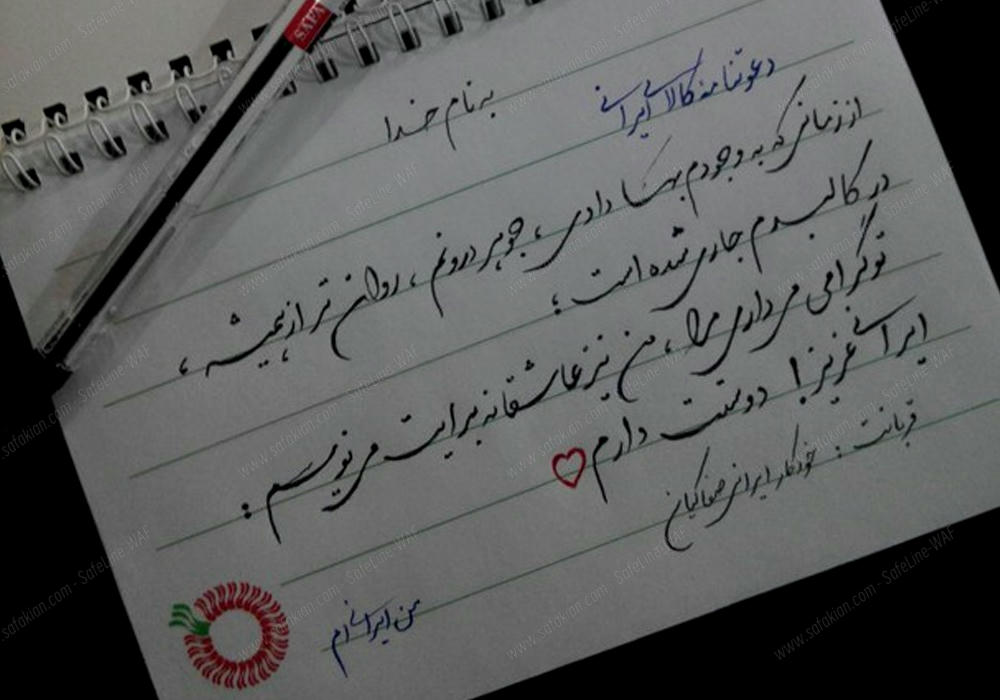 به نام خدا
دعوتنامه کالای ایرانی
از زمانی که به وجودم بها دادی، جوهر درونم، روان تر از همیشه،
در کالبدم جاری شده است؛
تو گرامی می داری مرا، من نیز عاشقانه برایت می نویسم:
ایرانی عزیز! دوستت دارم
قربانت: خودکار ایرانی صفاکیان
من ایرانی ام
www.safakian.com - SafeLine-WAF